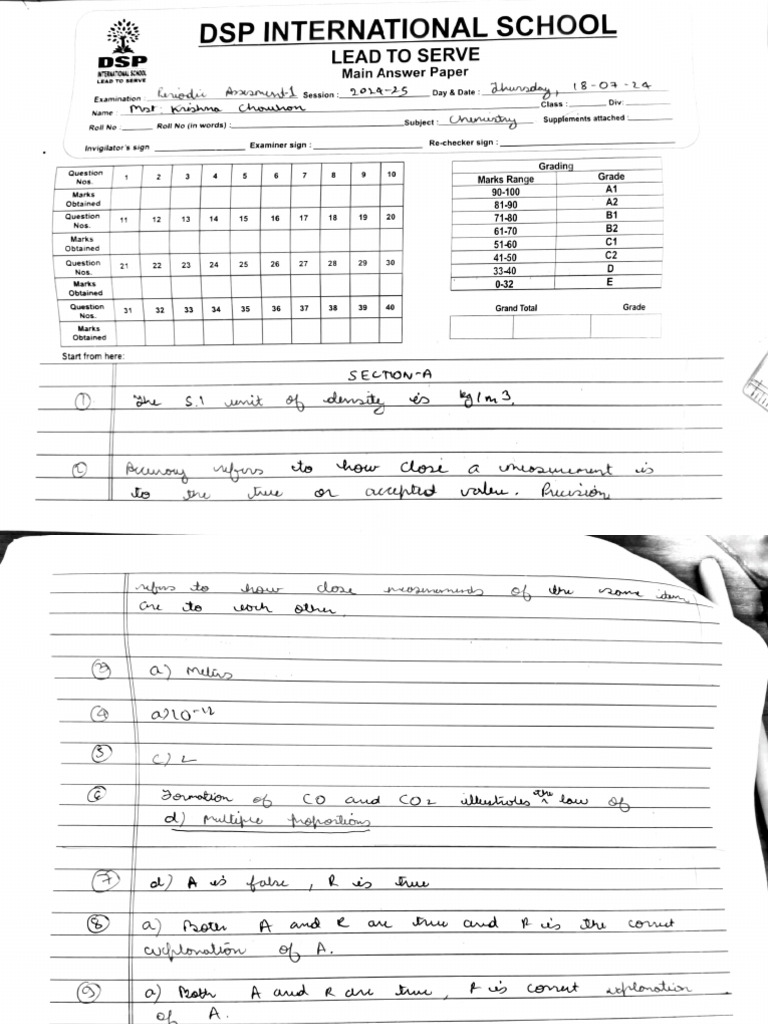 DSP INTERNATIONAL SCHOOL
DSP
INTERNATIONAL SCHOOL
LEAD TO SERVE
LEAD TO SERVE
Main Answer Paper
Examination : Periodic Assesment-1 Session : 2024-25 Day & Date : Thursday, 18-07-24
Name : Mst. Krishna Chouhon Class : Div:
Roll No : Roll No (in words) : Subject : Chemistry Supplements attached :
Invigilator's sign Examiner sign : Re-checker sign :
Question Nos. 1 2 3 4 5 6 7 8 9 10
Marks Obtained
Question Nos. 11 12 13 14 15 16 17 18 19 20
Marks Obtained
Question Nos. 21 22 23 24 25 26 27 28 29 30
Marks Obtained
Question Nos. 31 32 33 34 35 36 37 38 39 40
Marks Obtained
Grading
Marks Range Grade
90-100 A1
81-90 A2
71-80 B1
61-70 B2
51-60 C1
41-50 C2
33-40 D
0-32 E
Grand Total Grade
Start from here:
SECTION-A
1 The S.I unit of density is kg/m3.
2 Accuracy refers to how close a measurement is
to the true or accepted value. Precision
refers to how close measurements of the same item
are to each other.
3 a) Meters
4 a) 10-12
5 c) 2
6 Formation of CO and CO2 illustrates the law of
d) Multiple proportions
7 d) A is false, R is true
8 a) Both A and R are true and R is the correct
explanation of A.
9 a) Both A and R are true, R is correct explanation
of A.